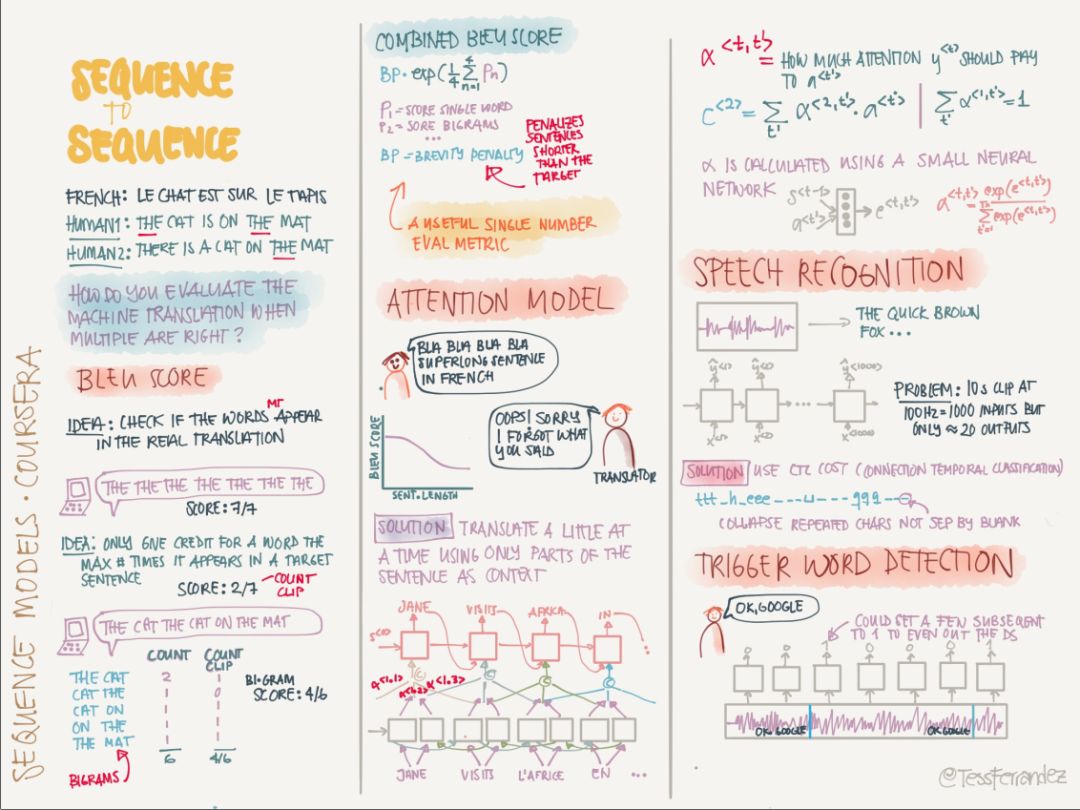 SEQUENCE
TO
SEQUENCE
FRENCH: LE CHAT EST SUR LE TAPIS
HUMAN1: THE CAT IS ON THE MAT
HUMAN2: THERE IS A CAT ON THE MAT
HOW DO YOU EVALUATE THE
MACHINE TRANSLATION WHEN
MULTIPLE ARE RIGHT?
BLEU SCORE
MT
IDEA: CHECK IF THE WORDS APPEAR
IN THE REAL TRANSLATION
THE THE THE THE THE THE THE
SCORE: 7/7
IDEA: ONLY GIVE CREDIT FOR A WORD THE
MAX # TIMES IT APPEARS IN A TARGET
SENTENCE
SCORE: 2/7
COUNT
CLIP
THE CAT THE CAT ON THE MAT
COUNT COUNT
CLIP
THE CAT 2 1
CAT THE 1 0
CAT ON 1 1
ON THE 1 1
THE MAT 1 1
6 4/6
BI-GRAM
SCORE: 4/6
BIGRAMS
SEQUENCE MODELS · COURSERA
COMBINED BLEU SCORE
BP · exp(1/4 4∑n=1 Pn)
P1 = SCORE SINGLE WORD
P2 = SORE BIGRAMS
...
BP = BREVITY PENALTY
PENALIZES
SENTENCES
SHORTER
THAN THE
TARGET
A USEFUL SINGLE NUMBER
EVAL METRIC
ATTENTION MODEL
BLA BLA BLA BLA
SUPERLONG SENTENCE
IN FRENCH
OOPS! SORRY
I FORGOT WHAT
YOU SAID
TRANSLATOR
BLEU SCORE
SENT. LENGTH
SOLUTION TRANSLATE A LITTLE AT
A TIME USING ONLY PARTS OF THE
SENTENCE AS CONTEXT
JANE VISITS AFRICA IN ...
S<0>
C C C C
α<1,1> α<1,2> α<1,3>
JANE VISITS L'AFRICE EN ...
α<t,t'> = HOW MUCH ATTENTION y<t> SHOULD PAY
TO a<t'>
C<2> = ∑t' α<2,t'> · a<t'> | ∑t' α<1,t'> = 1
α IS CALCULATED USING A SMALL NEURAL
NETWORK
S<t-1>
a<t'>
e<t,t'>
α<t,t'> = exp(e<t,t'>) / ∑t'=1 exp(e<t,t'>)
SPEECH RECOGNITION
THE QUICK BROWN
FOX ...
ŷ<1> ŷ<2> ŷ<1000>
...
x<1> x<2> x<1000>
PROBLEM: 10s CLIP AT
100Hz = 1000 INPUTS BUT
ONLY ≈ 20 OUTPUTS
SOLUTION USE CTC COST (CONNECTION TEMPORAL CLASSIFICATION)
ttt_h_eee___⊔___qqq__
COLLAPSE REPEATED CHARS NOT SEP BY BLANK
TRIGGER WORD DETECTION
OK, GOOGLE
COULD SET A FEW SUBSEQUENT
TO 1 TO EVEN OUT THE DS
0 0 1 0 0 0 1
OK, GOOGLE OK GOOGLE
@TessFerrandez